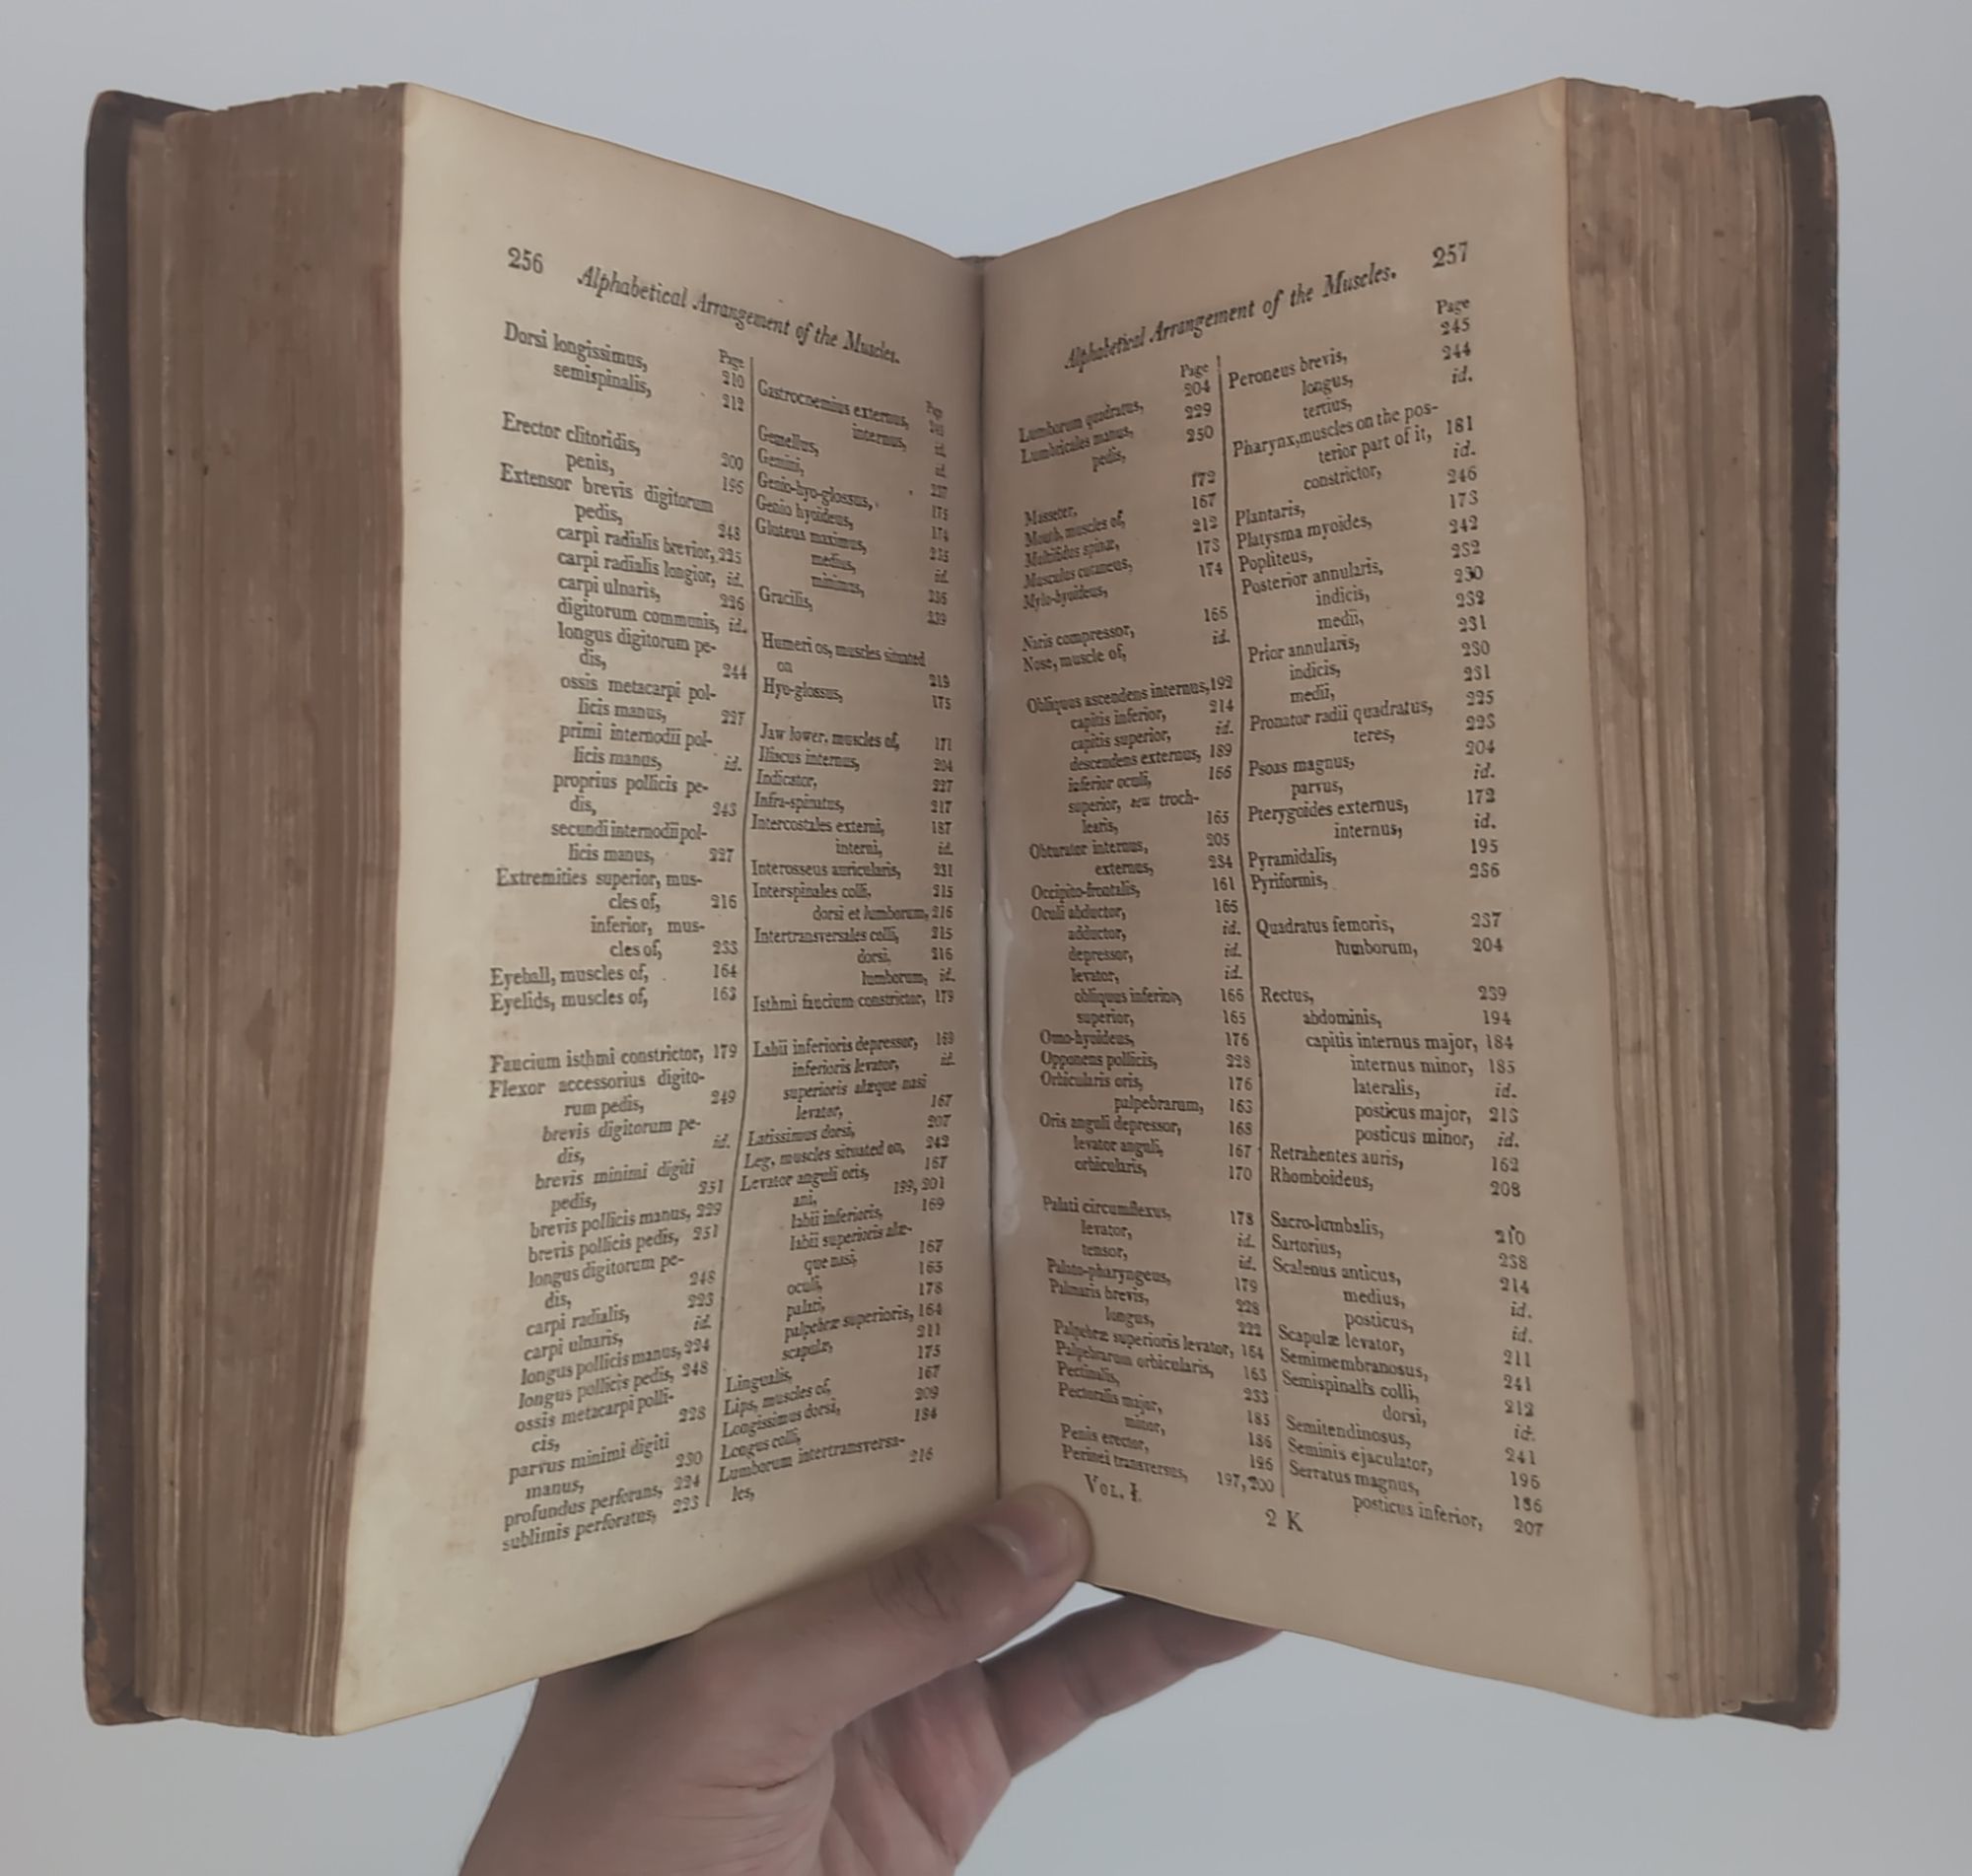 256 Alphabetical Arrangement of the Muscles.
Page
Dorsi longissimus, 210
semispinalis, 212
Erector clitoridis, 200
penis, 196
Extensor brevis digitorum
pedis, 248
carpi radialis brevior, 225
carpi radialis longior, id.
carpi ulnaris, 226
digitorum communis, id.
longus digitorum pe-
dis, 244
ossis metacarpi pol-
licis manus, 227
primi internodii pol-
licis manus, id.
proprius pollicis pe-
dis, 243
secundi internodii pol-
licis manus, 227
Extremities superior, mus-
cles of, 216
inferior, mus-
cles of, 233
Eyeball, muscles of, 164
Eyelids, muscles of, 163
Faucium isthmi constrictor, 179
Flexor accessorius digito-
rum pedis, 249
brevis digitorum pe-
dis, id.
brevis minimi digiti
pedis, 251
brevis pollicis manus, 229
brevis pollicis pedis, 251
longus digitorum pe-
dis, 248
carpi radialis, 223
carpi ulnaris, id.
longus pollicis manus, 224
longus pollicis pedis, 248
ossis metacarpi polli-
cis, 228
parvus minimi digiti
manus, 230
profundus perforans, 224
sublimis perforatus, 223
Page
Gastrocnemius externus,
internus, id.
Gemellus, id.
Gemini, 237
Genio-hyo-glossus, 175
Genio hyoideus, 174
Gluteus maximus, 235
medius, id.
minimus, 236
Gracilis, 239
Humeri os, muscles situated
on 219
Hyo-glossus, 175
Jaw lower, muscles of, 171
Iliacus internus, 204
Indicator, 227
Infra-spinatus, 217
Intercostales externi, 187
interni, id.
Interosseus auricularis, 231
Interspinales colli, 215
dorsi et lumborum, 216
Intertransversales colli, 215
dorsi, 216
lumborum, id.
Isthmi faucium constrictor, 179
Labii inferioris depressor, 169
inferioris levator, id.
superioris alæque nasi
levator, 167
Latissimus dorsi, 207
Leg, muscles situated on, 242
Levator anguli oris, 167
ani, 199, 201
labii inferioris, 169
labii superioris alæ-
que nasi, 167
oculi, 165
palati, 178
palpebræ superioris, 164
scapulæ, 211
Lingualis, 175
Lips, muscles of, 167
Longissimus dorsi, 209
Longus colli, 184
Lumborum intertransversa-
les, 216
Alphabetical Arrangement of the Muscles. 257
Page
Lumborum quadratus, 204
Lumbricales manus, 229
pedis, 250
Masseter, 172
Mouth, muscles of, 167
Multifidus spinæ, 212
Musculus cutaneus, 173
Mylo-hyoideus, 174
Naris compressor, 165
Nose, muscle of, id.
Obliquus ascendens internus, 192
capitis inferior, 214
capitis superior, id.
descendens externus, 189
inferior oculi, 166
superior, seu troch-
learis, 165
Obturator internus, 205
externus, 234
Occipito-frontalis, 161
Oculi abductor, 165
adductor, id.
depressor, id.
levator, id.
obliquus inferior, 166
superior, 165
Omo-hyoideus, 176
Opponens pollicis, 228
Orbicularis oris, 176
palpebrarum, 163
Oris anguli depressor, 168
levator anguli, 167
orbicularis, 170
Palati circumflexus, 178
levator, id.
tensor, id.
Palato-pharyngeus, 179
Palmaris brevis, 228
longus, 222
Palpebræ superioris levator, 164
Palpebrarum orbicularis, 163
Pectinalis, 233
Pectoralis major, 185
minor, 186
Penis erector, 196
Perinei transversus, 197, 200
Page
Peroneus brevis, 245
longus, 244
tertius, id.
Pharynx, muscles on the pos-
terior part of it, 181
constrictor, id.
Plantaris, 246
Platysma myoides, 173
Popliteus, 242
Posterior annularis, 232
indicis, 230
medii, 232
Prior annularis, 231
indicis, 230
medii, 231
Pronator radii quadratus, 225
teres, 223
Psoas magnus, 204
parvus, id.
Pterygoides externus, 172
internus, id.
Pyramidalis, 195
Pyriformis, 236
Quadratus femoris, 237
lumborum, 204
Rectus, 239
abdominis, 194
capitis internus major, 184
internus minor, 185
lateralis, id.
posticus major, 213
posticus minor, id.
Retrahentes auris, 162
Rhomboideus, 208
Sacro-lumbalis, 210
Sartorius, 238
Scalenus anticus, 214
medius, id.
posticus, id.
Scapulæ levator, 211
Semimembranosus, 241
Semispinalis colli, 212
dorsi, id.
Semitendinosus, 241
Seminis ejaculator, 196
Serratus magnus, 186
posticus inferior, 207
VOL. I.
2 K